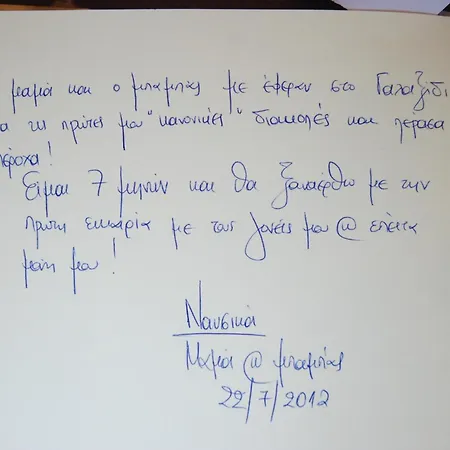 μαμά και ο μπαμπάς με έφεραν στο Γαλαξίδι
α τις πρώτες μου "κανονικές" διακοπές και πέρασα
πέροχα!
Είμαι 7 μηνών και θα ξαναέρθω με την
πρώτη ευκαιρία με τους γονείς μου @ έπειτα
μόνη μου!
Ναυσικά
Μαμά @ μπαμπάς
22/7/2012